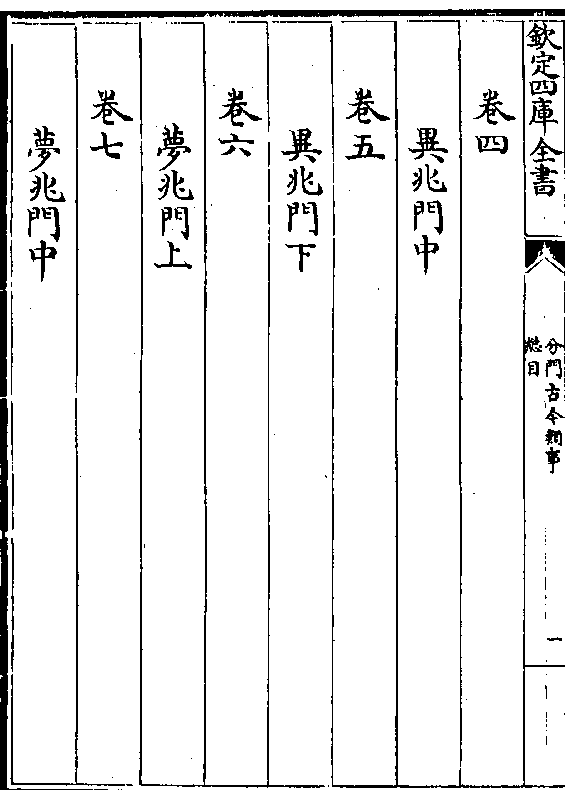 欽定四庫全書
分門古今類事
總目
一
卷四
異兆門中
卷五
異兆門下
卷六
夢兆門上
卷七
夢兆門中